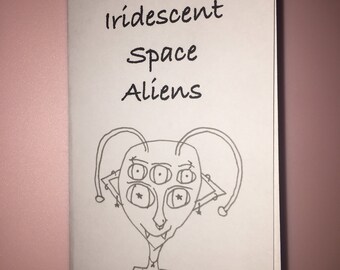 Iridescent
Space
Aliens